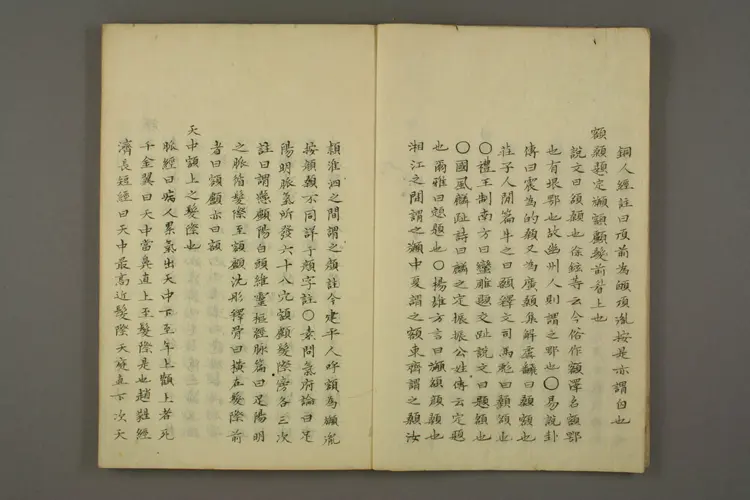 銅人經註曰項前為頄頑胤按是亦謂自也
額顙題定㒹頟顱髮前眉上也
說文曰頟顙也徐鉉等云今俗作額澤名額鄂
也有垠鄂也故幽州人則謂之鄂也〇易說卦
傳曰震為的顙又為廣顙集解虞翻曰顙額也
莊子人閒篇牛之曰顙釋文司馬彪曰顙頟也
〇禮王制南方曰蠻雕題交趾說文曰題頟也
〇國風麟趾詩曰麟之定振振公姓傳云定題
也爾雅曰顁題也〇楊雄方言曰㒹頟顏顙也
湘江之間謂之㒹中夏謂之額東齊謂之顙汝
頴淮泗之間謂之顏註今建平人呼額為㒹胤
按顏顙不同詳于顏字註〇素問氣府論曰足
陽明脈氣所發六十八穴額顱髮際旁各三次
註曰謂懸顱陽白頭維靈樞經脉篇曰足陽明
之脈循髮際至額顱沈彤釋骨曰橫在髮際前
者曰額顱亦曰額
天中額上之髮際也
脈經曰病人黑氣出天中下至年上顴上者死
千金翼曰天中當鼻直上至髮際是也趙蕤經
濟長短經曰天中最高近髮際天庭直下次天